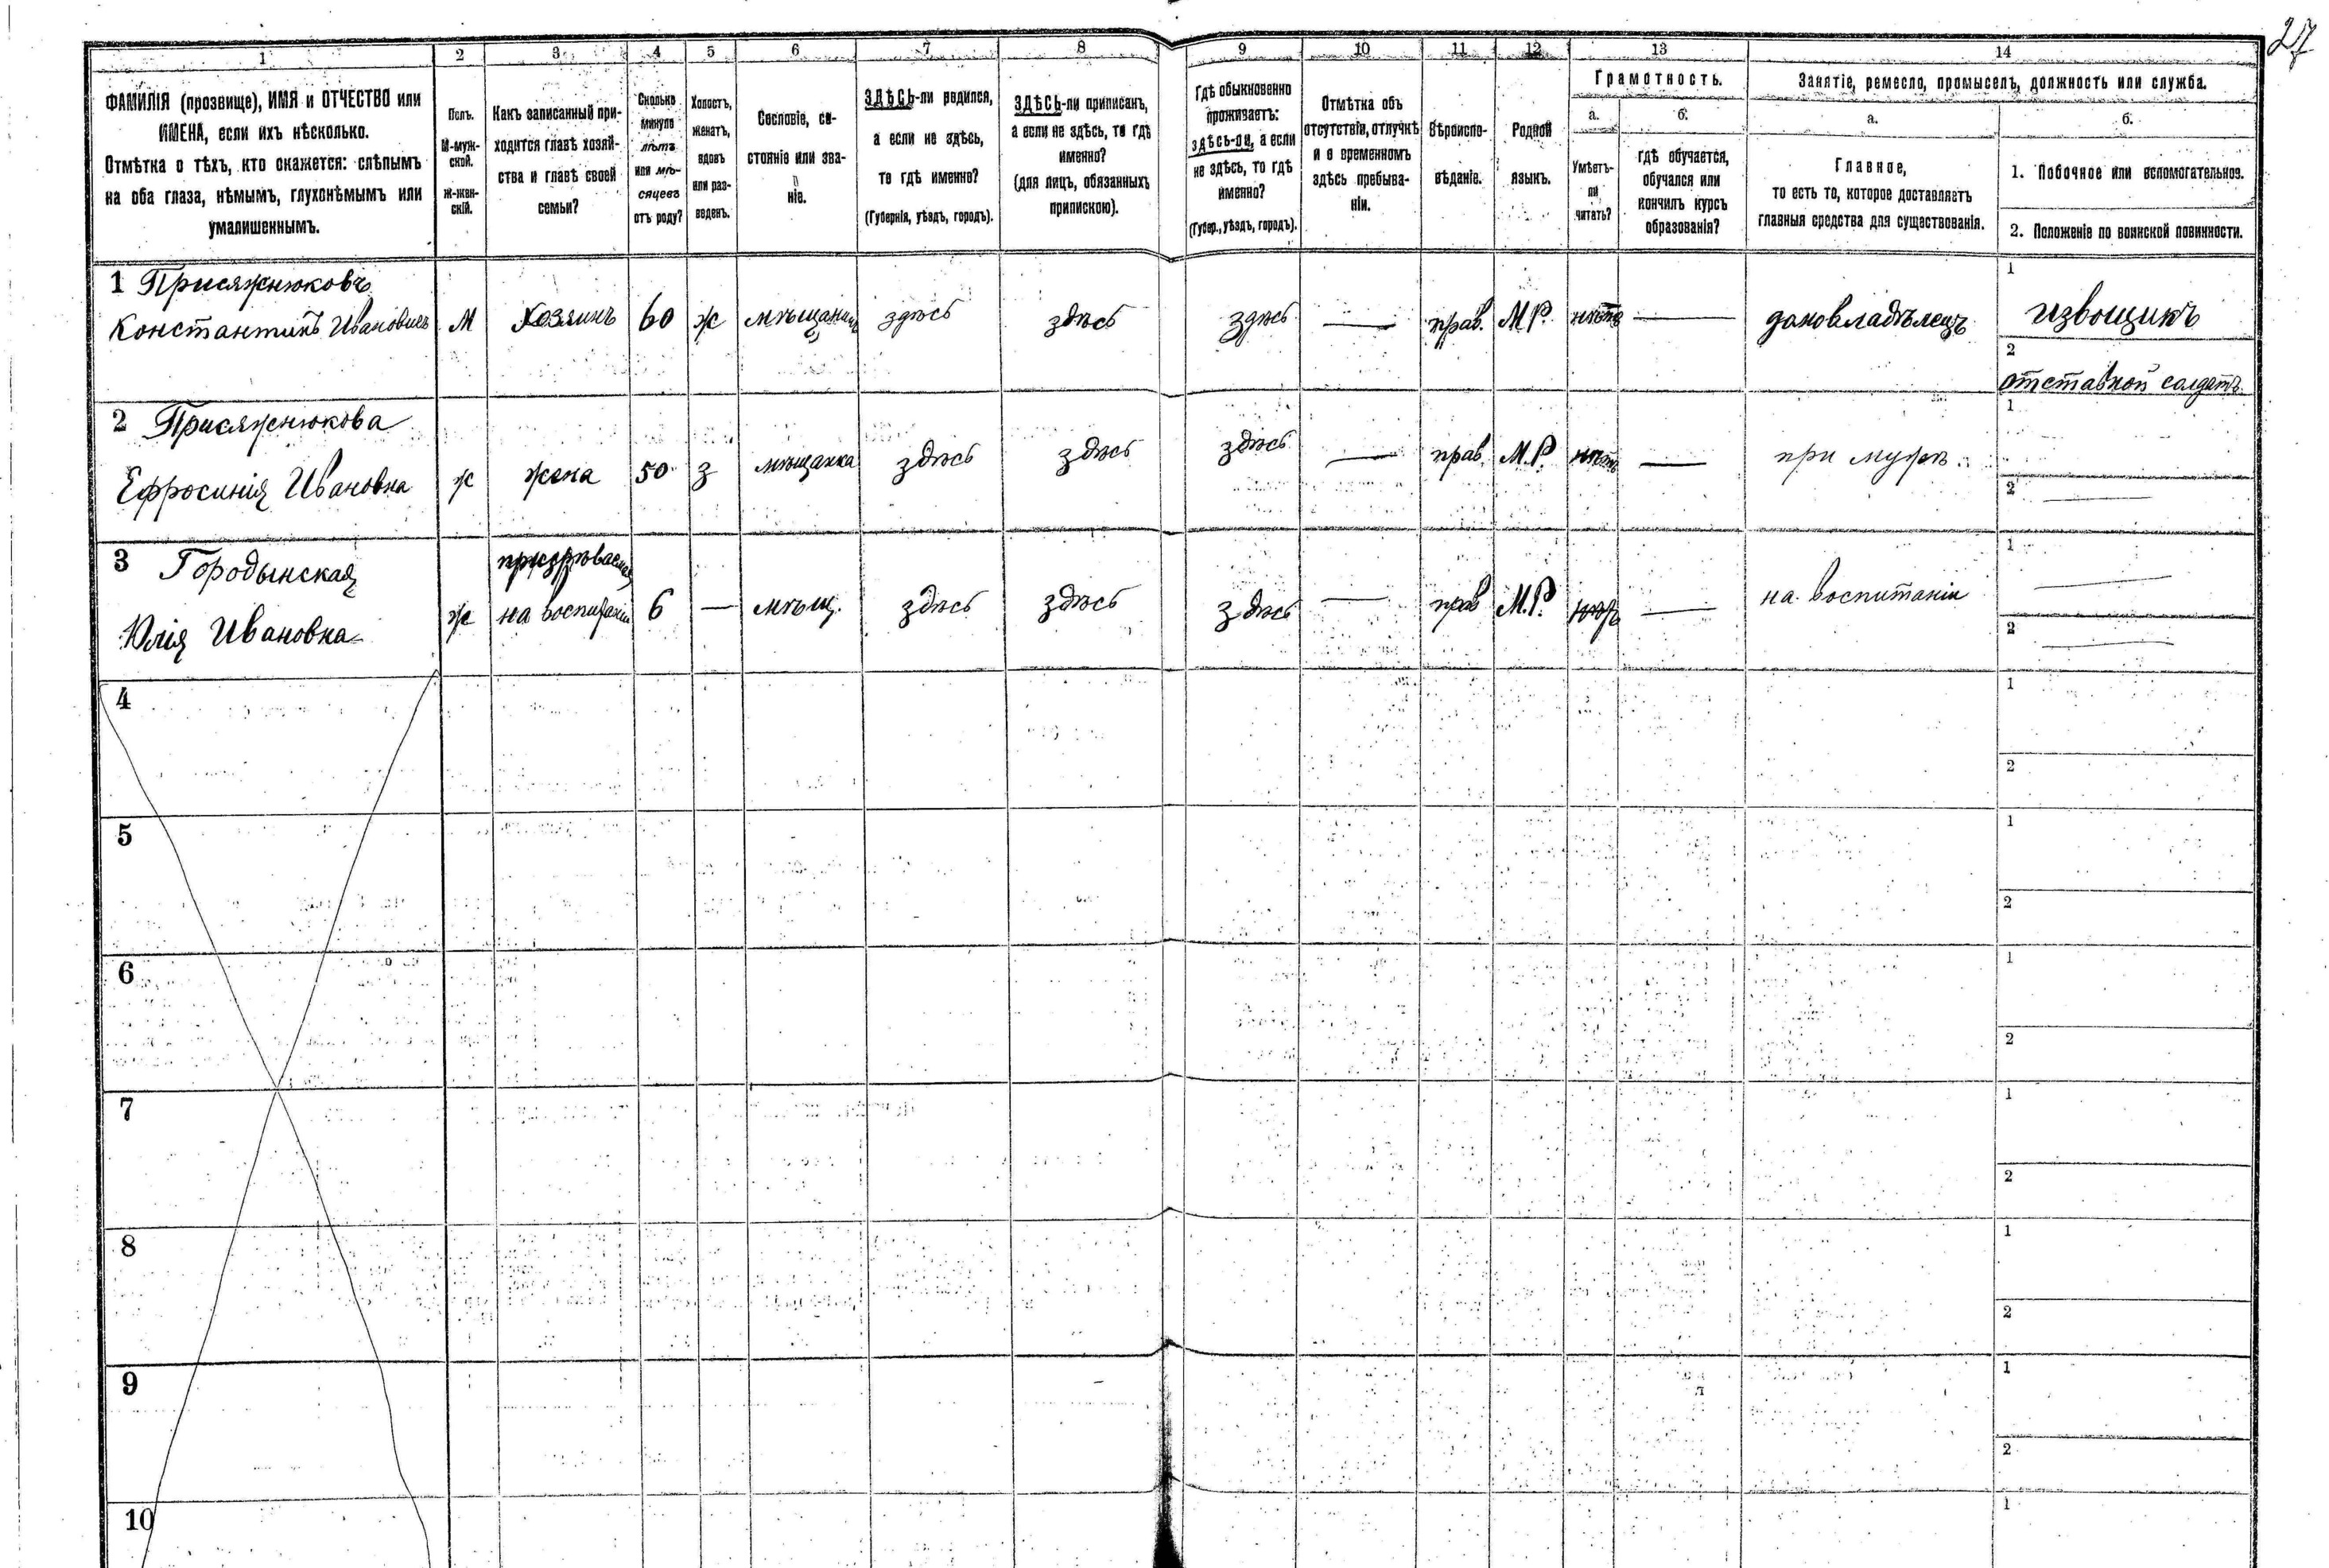 27
1 2 3 4 5 6 7 8 9 10 11 12 13 14
ФАМИЛІЯ (прозвище), ИМЯ и ОТЧЕСТВО или
ИМЕНА, если ихъ нѣсколько.
Отмѣтка о тѣхъ, кто окажется: слѣпымъ
на оба глаза, нѣмымъ, глухонѣмымъ или
умалишеннымъ.
Полъ.
М-муж-
ской.
Ж-жен-
скій.
Какъ записанный при-
ходится главѣ хозяй-
ства и главѣ своей
семьи?
Сколько
минуло
лѣтъ
или мѣ-
сяцевъ
отъ роду?
Холостъ,
женатъ,
вдовъ
или раз-
веденъ.
Сословіе, со-
стояніе или зва-
ніе.
ЗДѢСЬ-ли родился,
а если не здѣсь,
то гдѣ именно?
(Губернія, уѣздъ, городъ).
ЗДѢСЬ-ли приписанъ,
а если не здѣсь, то гдѣ
именно?
(для лицъ, обязанныхъ
припискою).
Гдѣ обыкновенно
проживаетъ:
здѣсь-ли, а если
не здѣсь, то гдѣ
именно?
(Губер., уѣздъ, городъ).
Отмѣтка объ
отсутствіи, отлучкѣ
и о временномъ
здѣсь пребыва-
ніи.
Вѣроиспо-
вѣданіе.
Родной
языкъ.
Грамотность.
а.
Умѣетъ-
ли
читать?
б.
гдѣ обучается,
обучался или
кончилъ курсъ
образованія?
Занятіе, ремесло, промыселъ, должность или служба.
а.
Главное,
то есть то, которое доставляетъ
главныя средства для существованія.
б.
1. Побочное или вспомогательное.
2. Положеніе по воинской повинности.
1 Присяжнюковъ
Константинъ Ивановичъ М Хозяинъ 60 ж мѣщанинъ здѣсь здѣсь здѣсь — прав. М.Р. нѣтъ — домовладѣлецъ
1 извощикъ
2 отставной солдатъ
2 Присяжнюкова
Ефросинія Ивановна ж жена 50 з мѣщанка здѣсь здѣсь здѣсь — прав. М.Р. нѣтъ — при мужѣ
1
2 —
3 Городынская
Юлія Ивановна ж призрѣваемая
на воспитаніи 6 — мѣщ. здѣсь здѣсь здѣсь — прав М.Р. нѣтъ — на воспитаніи
1 —
2 —
4
1
2
5
1
2
6
1
2
7
1
2
8
1
2
9
1
2
10
1